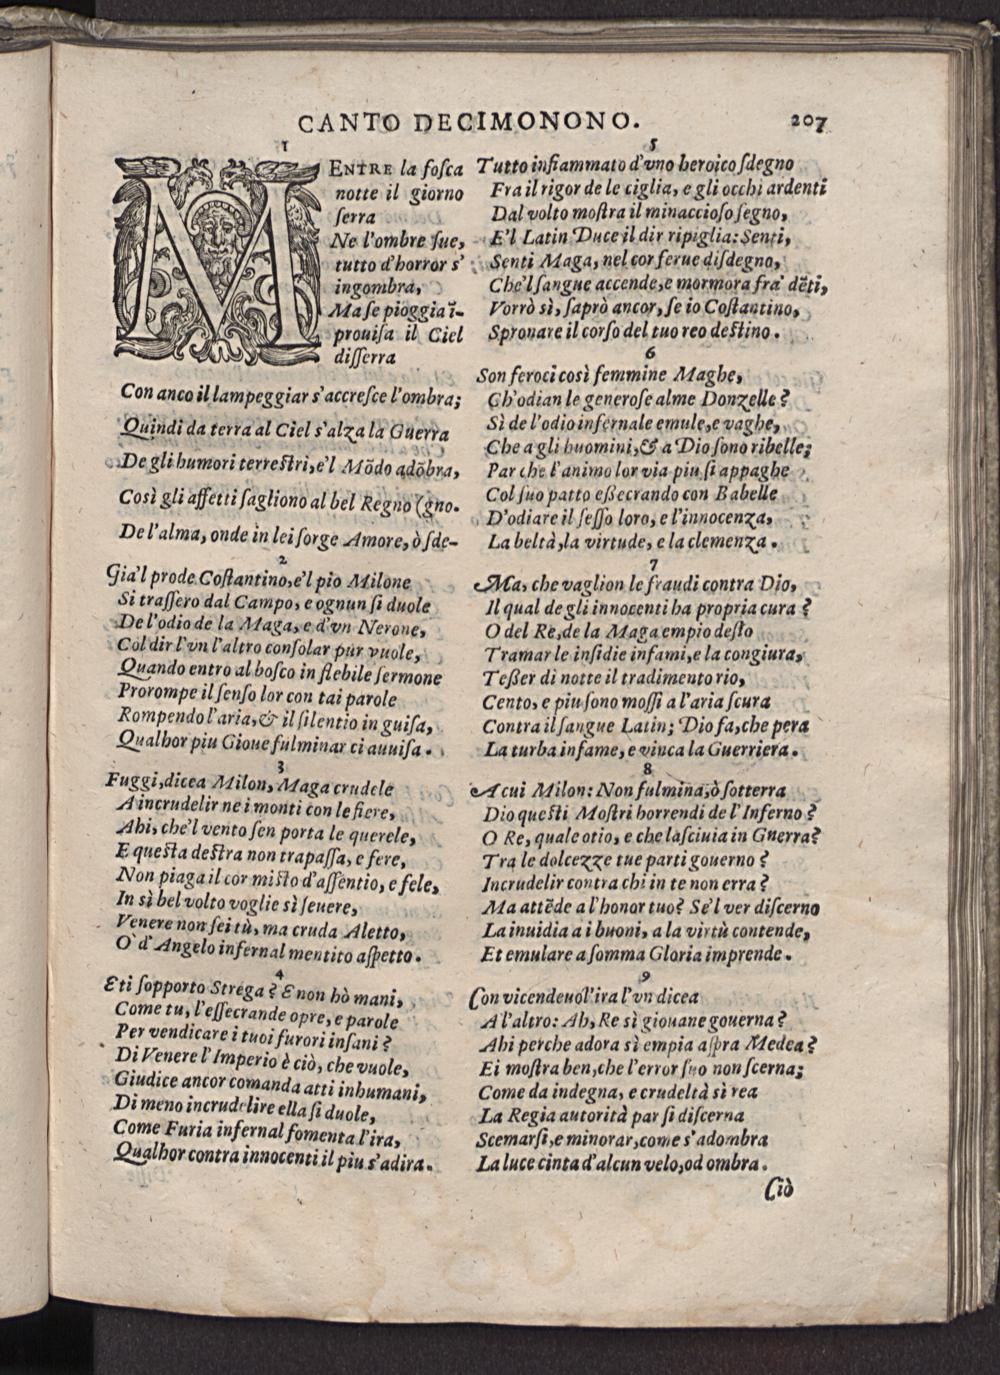 CANTO DECIMONONO. 207
1
MENTRE la foſca
notte il giorno
ſerra
Ne l'ombre ſue,
tutto d'horror s'
ingombra,
Ma ſe pioggia ĩ-
prouiſa il Ciel
diſſerra
Con anco il lampeggiar s'accreſce l'ombra;
Quindi da terra al Ciel s'alza la Guerra
De gli humori terreſtri, e'l Mõdo adõbra,
Così gli affetti ſagliono al bel Regno (gno.
De l'alma, onde in lei ſorge Amore, ò ſde-
2
Gia'l prode Coſtantino, e'l pio Milone
Si traſſero dal Campo, e ognun ſi duole
De l'odio de la Maga, e d'vn Nerone,
Col dir l'vn l'altro conſolar pur vuole,
Quando entro al boſco in flebile ſermone
Prorompe il ſenſo lor con tai parole
Rompendo l'aria, & il ſilentio in guiſa,
Qualhor piu Gioue fulminar ci auuiſa.
3
Fuggi, dicea Milon, Maga crudele
A incrudelir ne i monti con le fiere,
Ahi, che'l vento ſen porta le querele,
E queſta deſtra non trapaſſa, e fere,
Non piaga il cor miſto d'aſſentio, e fele,
In sì bel volto voglie sì ſeuere,
Venere non ſei tù, ma cruda Aletto,
O d'Angelo infernal mentito aſpetto.
4
E ti ſopporto Strega? E non hò mani,
Come tu, l'eſſecrande opre, e parole
Per vendicare i tuoi furori inſani?
Di Venere l'Imperio è ciò, che vuole,
Giudice ancor comanda atti inhumani,
Di meno incrudelire ella ſi duole,
Come Furia infernal fomenta l'ira,
Qualhor contra innocenti il piu s'adira.
5
Tutto infiammato d'vno heroico ſdegno
Fra il rigor de le ciglia, e gli occhi ardenti
Dal volto moſtra il minaccioſo ſegno,
E'l Latin Duce il dir ripiglia: Senti,
Senti Maga, nel cor ferue diſdegno,
Che'l ſangue accende, e mormora fra dẽti,
Vorrò sì, ſaprò ancor, ſe io Coſtantino,
Spronare il corſo del tuo reo deſtino.
6
Son feroci così femmine Maghe,
Ch'odian le generoſe alme Donzelle?
Sì de l'odio infernale emule, e vaghe,
Che a gli huomini, & a Dio ſono ribelle;
Par che l'animo lor via piu ſi appaghe
Col ſuo patto eßecrando con Babelle
D'odiare il ſeſſo loro, e l'innocenza,
La beltà, la virtude, e la clemenza.
7
Ma, che vaglion le fraudi contra Dio,
Il qual de gli innocenti ha propria cura?
O del Re, de la Maga empio deſio
Tramar le inſidie infami, e la congiura,
Teßer di notte il tradimento rio,
Cento, e piu ſono moſſi a l'aria ſcura
Contra il ſangue Latin; Dio fa, che pera
La turba infame, e vinca la Guerriera.
8
A cui Milon: Non fulmina, ò ſotterra
Dio queſti Moſtri horrendi de l'Inferno?
O Re, quale otio, e che laſciuia in Guerra?
Tra le dolcezze tue parti gouerno?
Incrudelir contra chi in te non erra?
Ma attẽde a l'honor tuo? Se'l ver diſcerno
La inuidia a i buoni, a la virtù contende,
Et emulare a ſomma Gloria imprende.
9
Con vicendeuol'ira l'vn dicea
A l'altro: Ah, Re sì giouane gouerna?
Ahi perche adora sì empia aſpra Medea?
Ei moſtra ben, che l'error ſuo non ſcerna;
Come da indegna, e crudeltà sì rea
La Regia autorità par ſi diſcerna
Scemarſi, e minorar, come s'adombra
La luce cinta d'alcun velo, od ombra.
Ciò